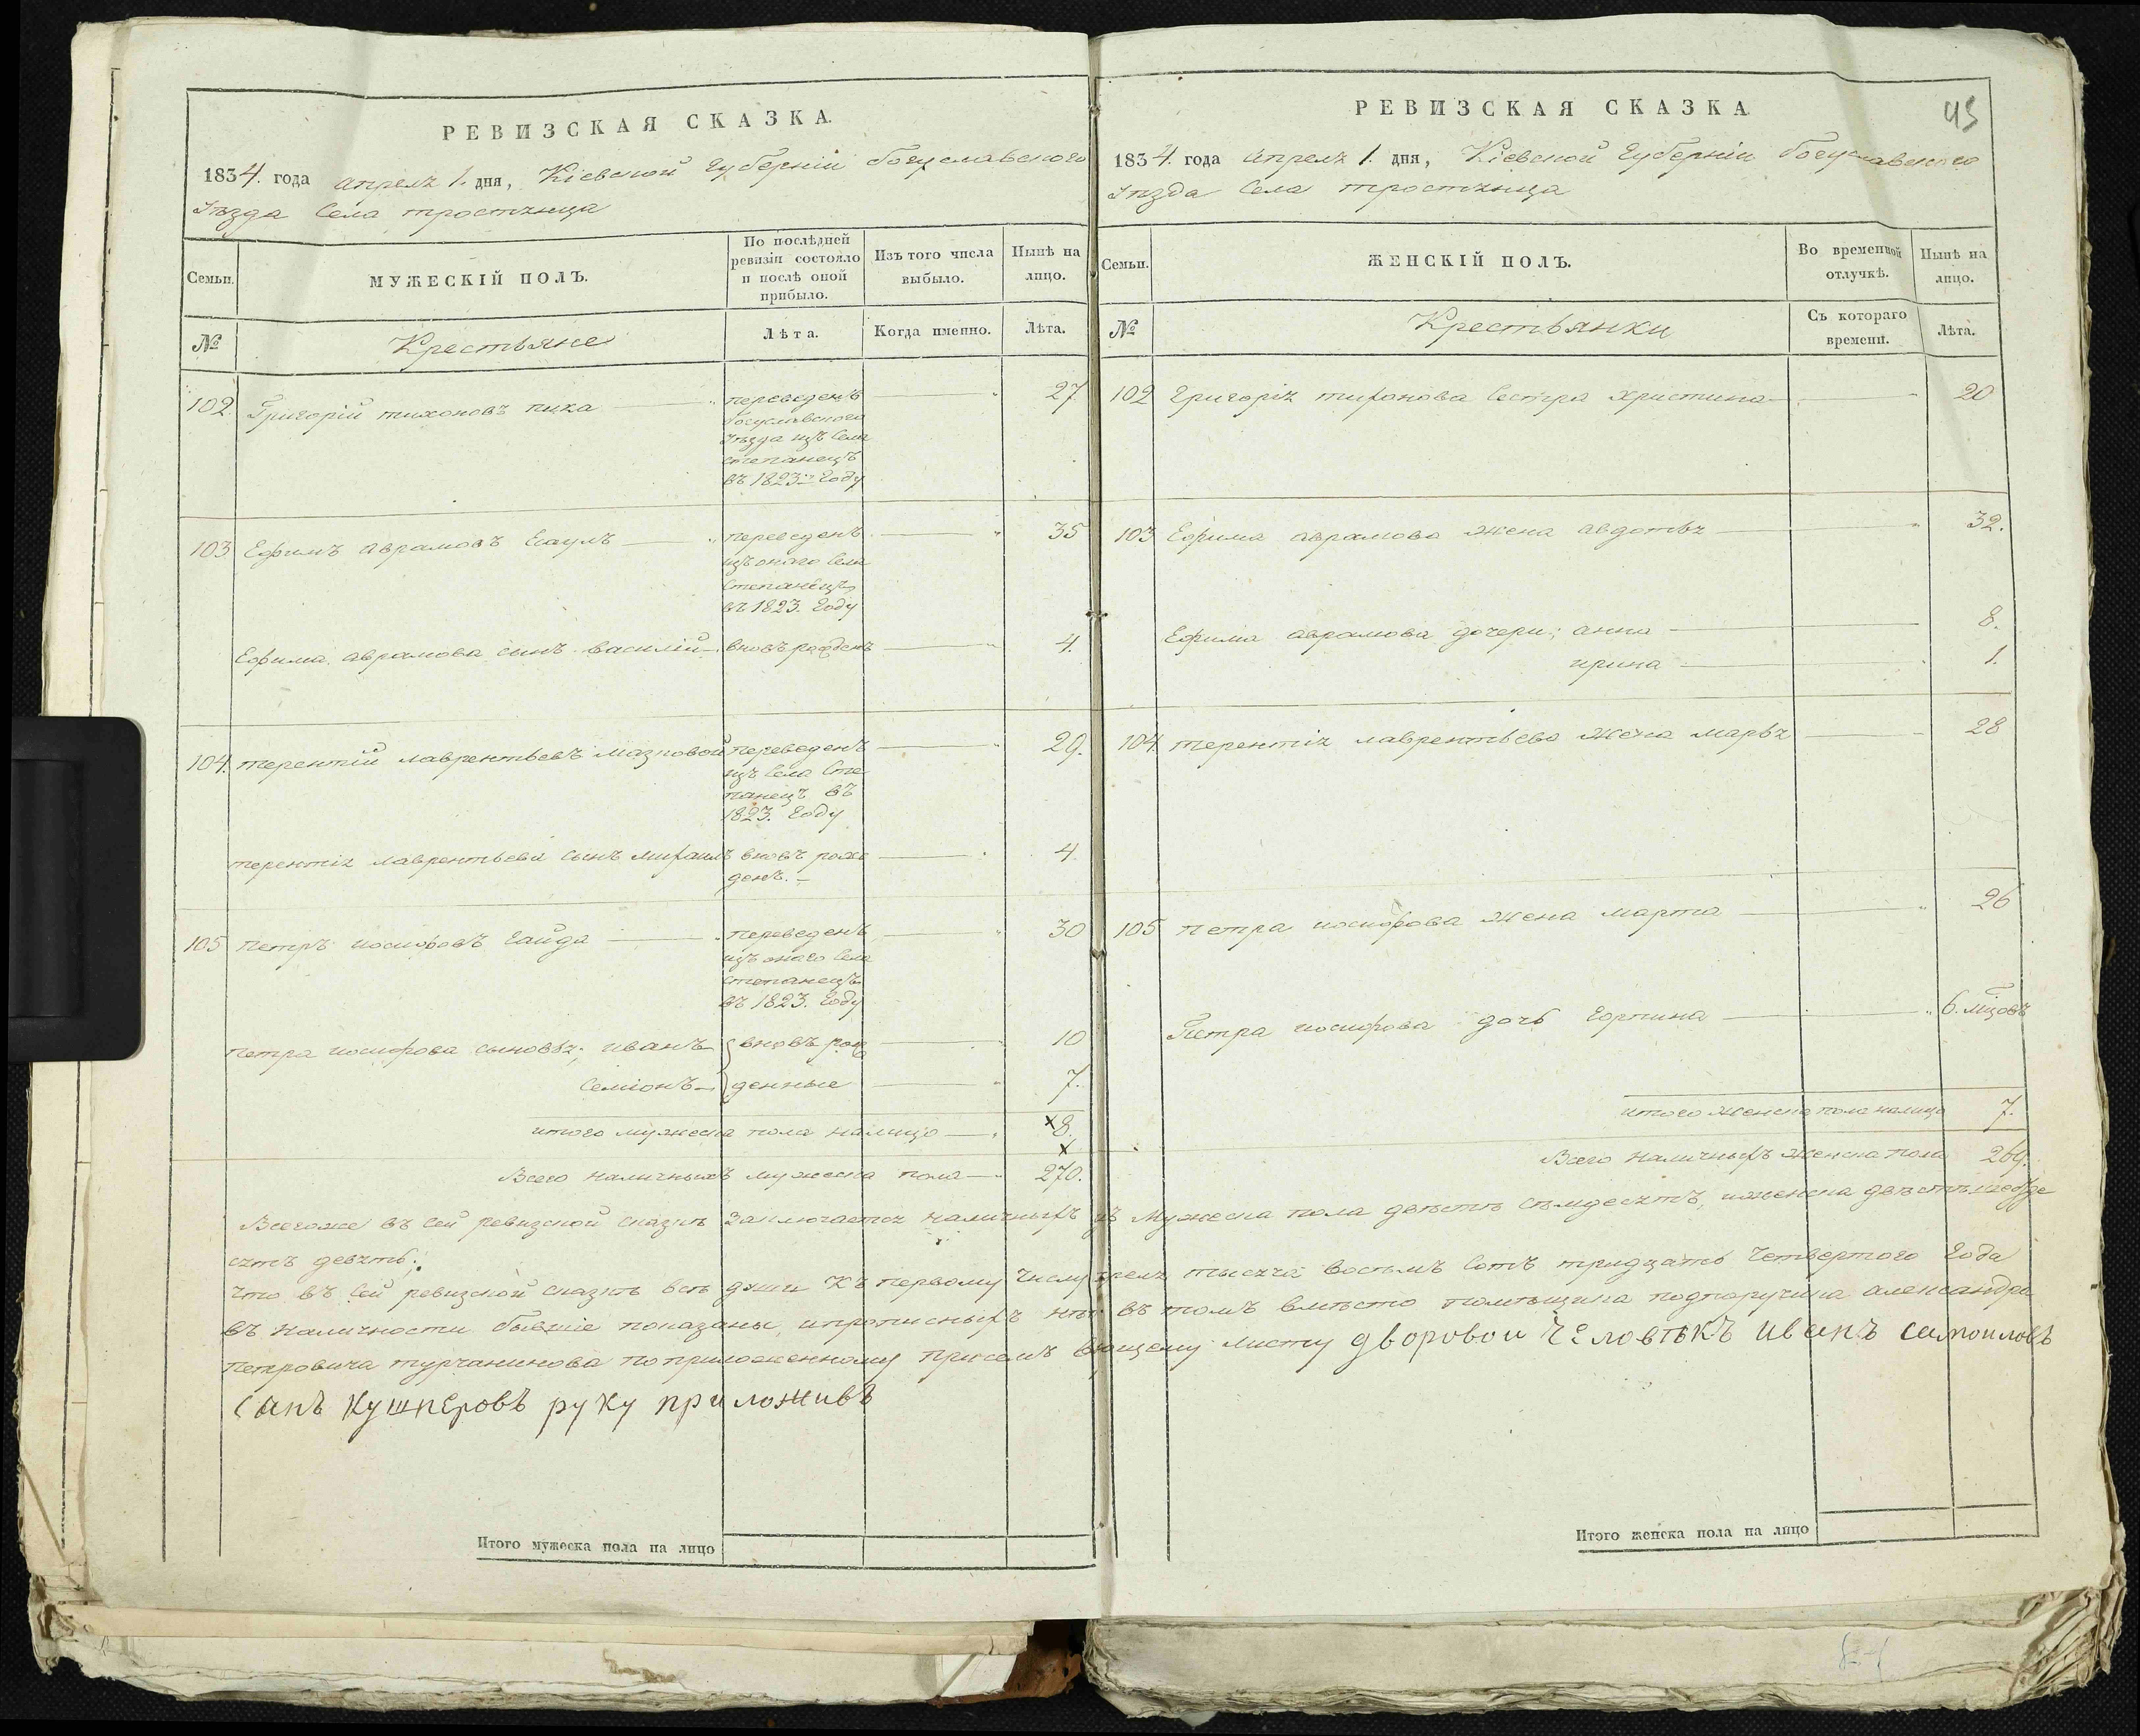 РЕВИЗСКАЯ СКАЗКА.
1834. года апреля 1. дня, Кіевской Губерніи Богуславского
Уѣзда Села тростянца
Семьи.
МУЖЕСКІЙ ПОЛЪ.
По послѣдней
ревизіи состояло
и послѣ оной
прибыло.
Изъ того числа
выбыло.
Нынѣ на
лицо.
№
Крестьяне
Лѣта.
Когда именно.
Лѣта.
102. Григорій тихоновъ пика переведенъ 27
Богуславского
Уѣзда изъ Села
степанецъ
въ 1823м Году
103 Ефимъ аврамовъ Есаулъ переведенъ 35
изъ оного Села
Степанецъ
въ 1823. Году
Ефима аврамова сынъ василій вновь рожденъ 4.
104. терентій лаврентьевъ мазповой переведенъ 29.
изъ Села Сте
панецъ въ
1823. Году
терентія лаврентьева сынъ михаилъ вновь рож 4
денъ.
105 петръ иосифовъ Гайда переведенъ 30
изъ оного Села
степанецъ
въ 1823. Году
петра иосифова сыновья; иванъ вновь рож 10
Семіонъ денные 7.
итого мужеска пола налицо 8.
Всего наличныхъ мужеска пола 270.
РЕВИЗСКАЯ СКАЗКА
45
1834. года апреля 1. дня, Кіевской Губерніи Богуславского
Уѣзда Села тростянца
Семьи.
ЖЕНСКІЙ ПОЛЪ.
Во временной
отлучкѣ.
Нынѣ на
лицо.
№
Крестьянки
Съ котораго
времени.
Лѣта.
102 Григорія тихонова Сестра христина 20
103 Ефима аврамова жена авдотья 32.
Ефима аврамова дочери; анна 8.
ирина 1.
104 терентія лаврентьева жена марья 28
105 петра иосифова жена марта 26
Петра иосифова дочь Горпина 6. мѣцовъ
итого женска пола налицо 7.
Всего наличныхъ женска пола 269.
Всегоже въ сей ревизской сказкѣ заключается наличныхъ мужеска пола двѣстѣ семдесятъ, иженска двѣстѣ шездѣ
сятъ девять;
Что въ Сей ревизской сказкѣ всѣ души Къ первому Числу апреля тысяча восемъ Сотъ тридцать Четвертого Года
въ наличности бывшіе показаны, ипрописныхъ нѣтъ въ томъ вмѣсто помѣщика подпоручика александра
петровича турчанинова поприложенному присемъ вѣрющему листу дворовои Человѣкъ иванъ самоиловъ
санъ кушнеровъ руку приложивъ
Итого мужеска пола на лицо
Итого женска пола на лицо